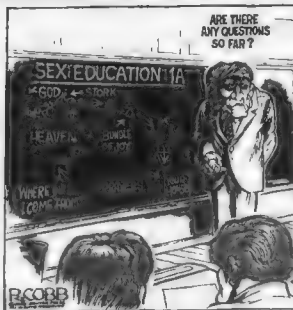 ARE THERE
ANY QUESTIONS
SO FAR?
SEX EDUCATION 1A
GOD ← STORK
HEAVEN
BUNDLE
OF JOY
WHERE
I COME FROM
R. COBB